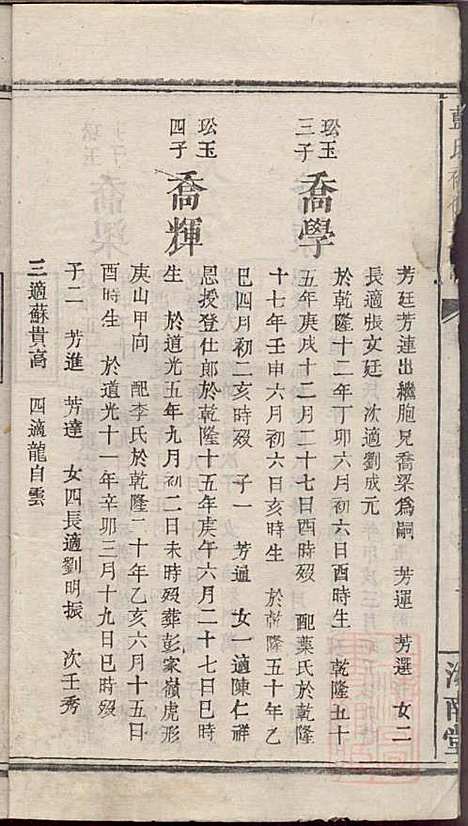 芳廷芳連出繼胞兄喬梁為嗣 芳運 芳選 女二
長適張文廷 次適劉成元
玜玉
三子
喬學
於乾隆十二年丁卯六月初六日酉時生 乾隆五十
五年庚戌十二月二十七日酉時歿 配葉氏於乾隆
十七年壬申六月初六日亥時生 於乾隆五十年乙
巳四月初二亥時歿 子一 芳通 女一適陳仁祥
玜玉
四子
喬輝
恩授登仕郎於乾隆十五年庚午六月二十七日巳時
生 於道光五年九月初二日未時歿葬彭家嶺虎形
庚山甲向 配李氏於乾隆二十年乙亥六月十五日
酉時生 於道光十一年辛卯三月十九日巳時歿
子二 芳進 芳達 女四長適劉明振 次王秀
三適蘇貴高 四適龍自雲